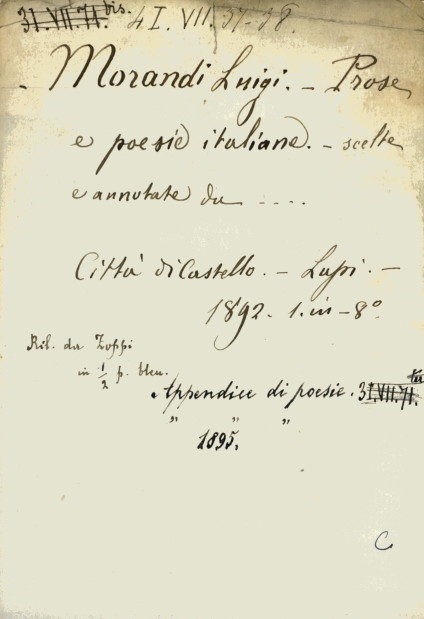 31.VII.71.bis. 4 I. VII. 37-38.
Morandi Luigi. - Prose
e poesie italiane. - scelte
e annotate da ....
Città di Castello. - Lapi. -
1892. 1. in - 8°
Ril. da Zoppi
in 1/2 p. bleu.
Appendice di poesie. 31.VII.71. ter
" " "
1895.
C